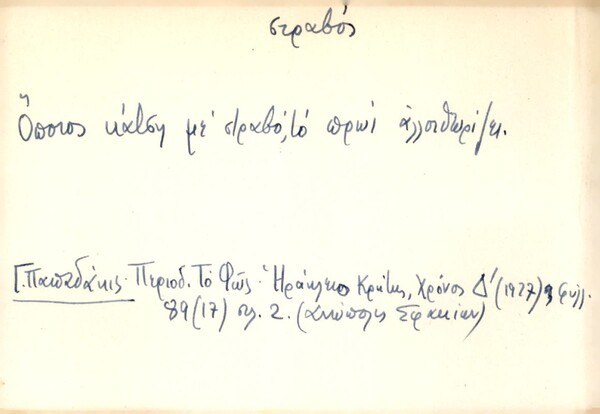 στραβός
Ὅποιος κάτση μέ στραβό, τό πρωί ἀλλοιθωρίζει.
Γ. Παπαδάκις. Περιοδ. Τό Φῶς. Ἡράκλειο Κρήτης, Χρόνος Δ' (1927), φύλλ.
89 (17) σελ. 2. (Ἀνώπολις Σφακίων)